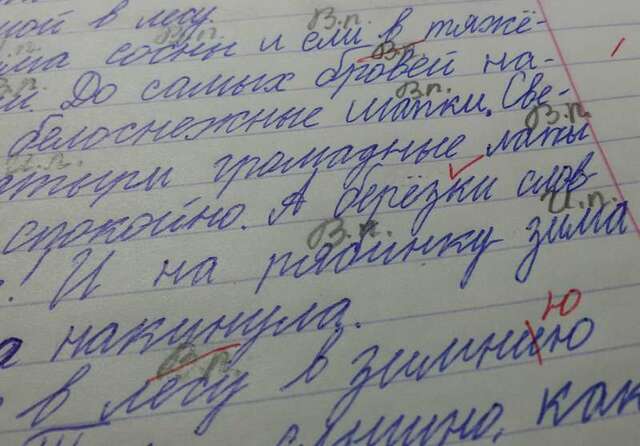 ной в лесу.
В.п.
сосны и ели в тяжё-
В.п.
До самых бровей на-
В.п.
белоснежные шапки. Све-
И.п. В.п.
громадные лапы
спокойно. А берёзки слов
В.п. И.п.
И на рябинку зима
а накинула.
ю
В.п.
в лесу в зимнию
как